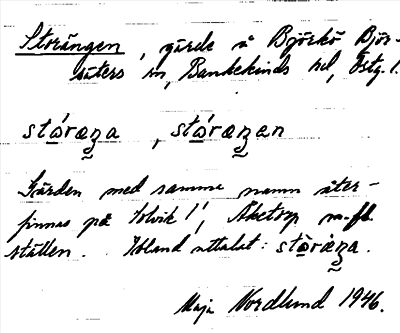 Storängen, gärde å Björkö Björ-
säters sn, Bankekinds hd, Östg. l.
stó̱ræŋa, stó̱ræŋan
Gärden med samma namn åter-
finnas på Holvik 1/1, Åketorp m.fl.
ställen. Ibland uttalat: stò̱ràŋa.
Maja Nordlund 1946.